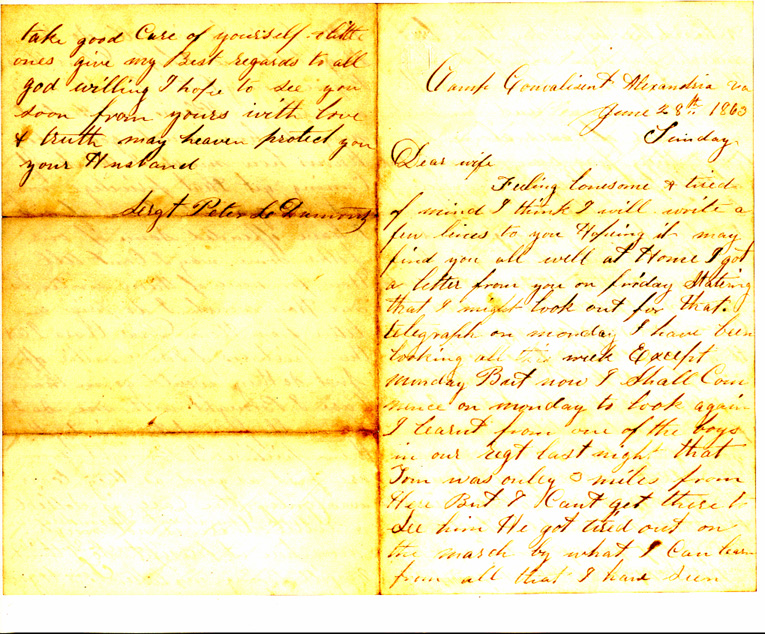 Camp Convalisent Alexandria va
June 28th 1863
Sunday
Dear wife
Feeling lonesome & tired
of mind I think I will write a
few lines to you Hoping it may
find you all well at Home I got
a letter from you on friday Stateing
that I might look out for that
telegraph on monday I have been
looking all this week Except
monday But now I Shall Com
mence on monday to look again
I learnt from one of the boys
in our regt last night that
Tom was onley miles from
Here But I Cant get there to
See him He got tired out on
the march by what I Can learn
from all that I have seen
take good Care of yourself &
ones give my Best regards to all
god willing I hope to see you
soon from yours with love
& truth may heaven protect you
your Husband
Sergt Peter L Dumont